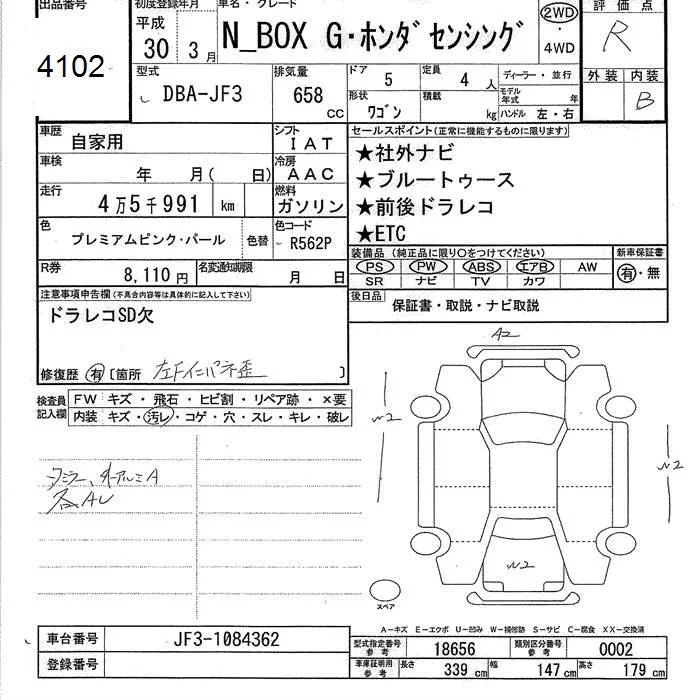 出品番号 4102
初度登録年月 平成 30年 3月
車名・グレード N_BOX G・ホンダセンシング
2WD・4WD
評価点 R
型式 DBA-JF3
排気量 658 CC
ドア 5
定員 4人
形状 ワゴン
積載 kg
ディーラー・並行
モデル年式 年
ハンドル 左・右
外装 内装 B
車歴 自家用
シフト IAT
車検 年 月( 日)
冷房 AAC
走行 4万5千991 km
燃料 ガソリン
色 プレミアムピンク・パール 色替
色コード R562P
R券 8,110円
名変通知期限 月 日
セールスポイント(正常に機能するものに限ります)
★社外ナビ
★ブルートゥース
★前後ドラレコ
★ETC
装備品 (純正品に限り○をつけてください)
PS PW ABS エアB AW
SR ナビ TV カワ
新車保証書 有・無
後日品 保証書・取説・ナビ取説
注意事項申告欄(不具合内容等は具体的に記入して下さい)
ドラレコSD欠
修復歴 有 [箇所 左Fインパネ歪 ]
検査員記入欄
FW キズ・飛石・ヒビ割・リペア跡・×要
内装 キズ・汚レ・コゲ・穴・スレ・キレ・破レ
ミラー、ホーアルミA
各AU
A2
W2
W2
W2
スペア
A−キズ E−エクボ U−凹み W−補修跡 S−サビ C−腐食 XX−交換済
車台番号 JF3-1084362
登録番号
型式指定番号 参考 18656
類別区分番号 参考 0002
車庫証明用 参考 長さ 339 cm 幅 147 cm 高さ 179 cm